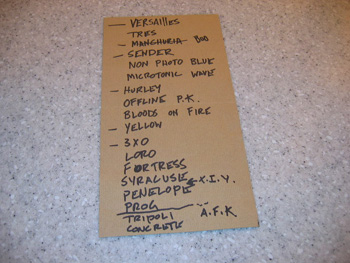 — VERSAILLES
TRES
— MANCHURIA — BOO
— SENDER
NON PHOTO BLUE
MICROTONIC WAVE
— HURLEY
OFFLINE P.K.
BLOODS ON FIRE
— YELLOW
— 3X0
LORO
FORTRESS
SYRACUSE ← X.I.Y.
PENELOPE
PROG
TRIPOLI A.F.K
CONCRETE